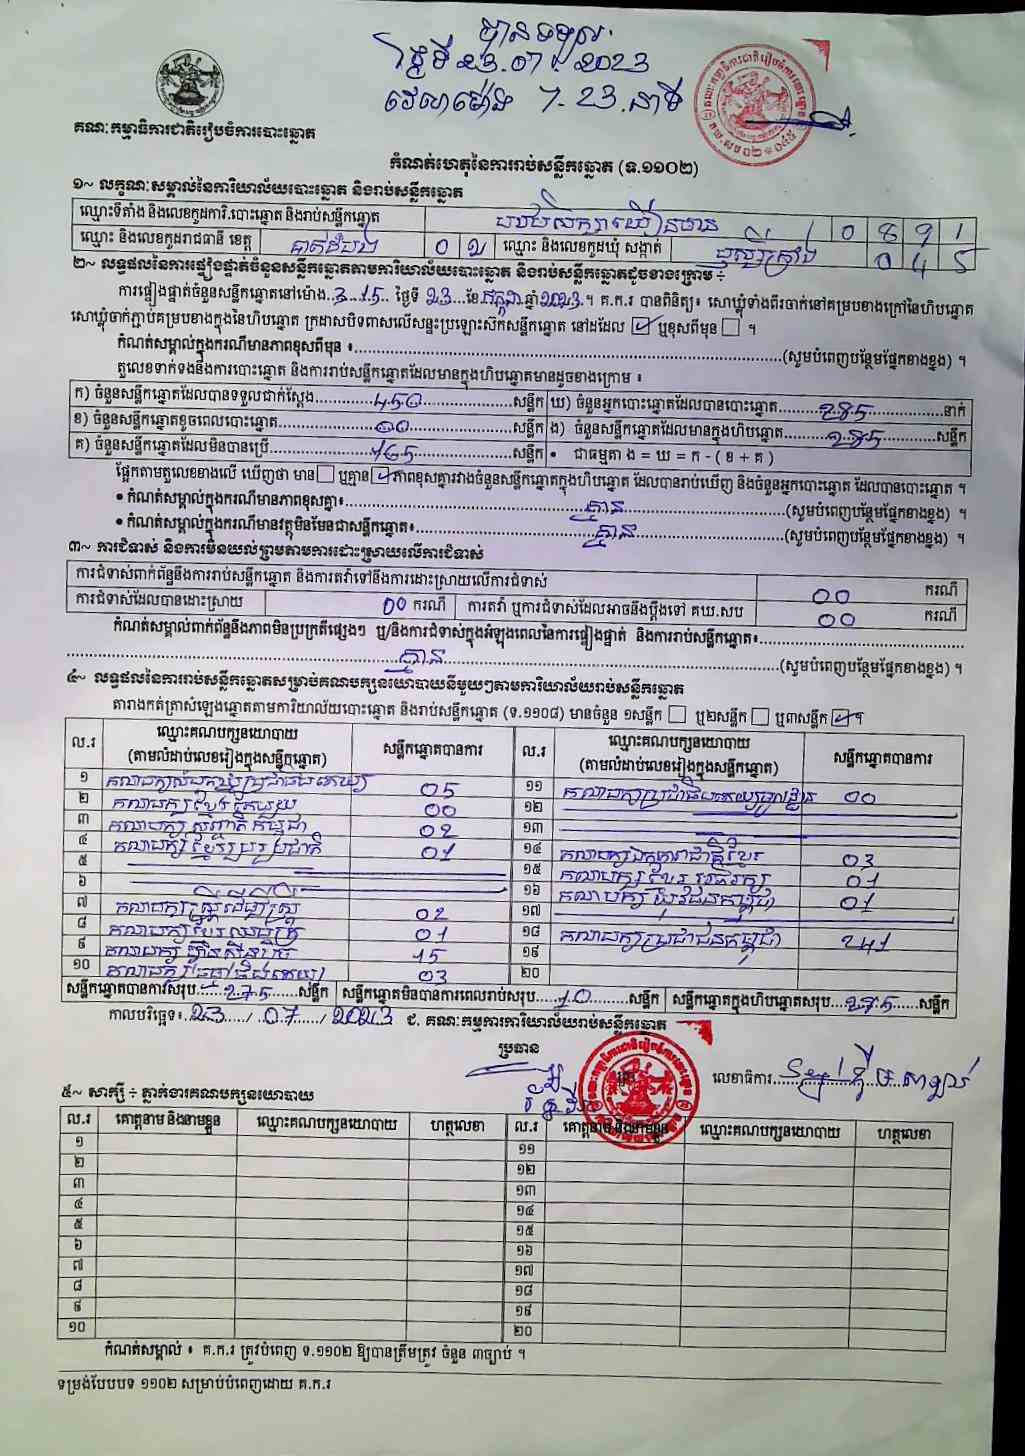 បានទទួល
ថ្ងៃទី 23.07.2023
វេលាម៉ោង 7.23 នាទី
គណៈកម្មាធិការជាតិរៀបចំការបោះឆ្នោត
កំណត់ហេតុនៃការរាប់សន្លឹកឆ្នោត (ទ.១១០២)
១~ លក្ខណៈសម្គាល់នៃការិយាល័យបោះឆ្នោត និងរាប់សន្លឹកឆ្នោត
ឈ្មោះទីតាំង និងលេខកូដការិ.បោះឆ្នោត និងរាប់សន្លឹកឆ្នោត 0 8 9 1
ឈ្មោះ និងលេខកូដរាជធានី ខេត្ត បាត់ដំបង 0 2 ឈ្មោះ និងលេខកូដឃុំ សង្កាត់ 0 4 5
២~ លទ្ធផលនៃការផ្ទៀងផ្ទាត់ចំនួនសន្លឹកឆ្នោតតាមការិយាល័យបោះឆ្នោត និងរាប់សន្លឹកឆ្នោតដូចខាងក្រោម ៖
ការផ្ទៀងផ្ទាត់ចំនួនសន្លឹកឆ្នោតនៅម៉ោង..3.15.. ថ្ងៃទី 23 ខែ កក្កដា ឆ្នាំ 2023 ។ គ.ក.រ បានពិនិត្យ៖ សោឃ្លុំទាំងពីរចាក់នៅគម្របខាងក្រៅនៃហិបឆ្នោត
សោឃ្លុំចាក់ភ្ជាប់គម្របខាងក្នុងនៃហិបឆ្នោត ក្រដាសបិទពាសលើសន្ទះប្រឡោះស៊កសន្លឹកឆ្នោត នៅដដែល ☑ ឬខុសពីមុន ☐ ។
កំណត់សម្គាល់ក្នុងករណីមានភាពខុសពីមុន ៖ (សូមបំពេញបន្ថែមផ្នែកខាងខ្នង) ។
តួលេខទាក់ទងនឹងការបោះឆ្នោត និងការរាប់សន្លឹកឆ្នោតដែលមានក្នុងហិបឆ្នោតមានដូចខាងក្រោម ៖
ក) ចំនួនសន្លឹកឆ្នោតដែលបានទទួលជាក់ស្តែង 450 សន្លឹក ឃ) ចំនួនអ្នកបោះឆ្នោតដែលបានបោះឆ្នោត 285 នាក់
ខ) ចំនួនសន្លឹកឆ្នោតខូចពេលបោះឆ្នោត 00 សន្លឹក ង) ចំនួនសន្លឹកឆ្នោតដែលមានក្នុងហិបឆ្នោត 285 សន្លឹក
គ) ចំនួនសន្លឹកឆ្នោតដែលមិនបានប្រើ 165 សន្លឹក • ជាធម្មតា ង = ឃ = ក - ( ខ + គ )
ផ្អែកតាមតួលេខខាងលើ ឃើញថា មាន ☐ ឬគ្មាន ☑ ភាពខុសគ្នារវាងចំនួនសន្លឹកឆ្នោតក្នុងហិបឆ្នោត ដែលបានរាប់ឃើញ និងចំនួនអ្នកបោះឆ្នោត ដែលបានបោះឆ្នោត ។
• កំណត់សម្គាល់ក្នុងករណីមានភាពខុសគ្នា៖ គ្មាន (សូមបំពេញបន្ថែមផ្នែកខាងខ្នង) ។
• កំណត់សម្គាល់ក្នុងករណីមានវត្ថុមិនមែនជាសន្លឹកឆ្នោត៖ គ្មាន (សូមបំពេញបន្ថែមផ្នែកខាងខ្នង) ។
៣~ ការជំទាស់ និងការមិនយល់ព្រមតាមការដោះស្រាយលើការជំទាស់
ការជំទាស់ពាក់ព័ន្ធនឹងការរាប់សន្លឹកឆ្នោត និងការតវ៉ាទៅនឹងការដោះស្រាយលើការជំទាស់ 00 ករណី
ការជំទាស់ដែលបានដោះស្រាយ 00 ករណី ការតវ៉ា ឬការជំទាស់ដែលអាចនឹងប្តឹងទៅ គឃ.សប 00 ករណី
កំណត់សម្គាល់ពាក់ព័ន្ធនឹងភាពមិនប្រក្រតីផ្សេងៗ ឬ/និងការជំទាស់ក្នុងអំឡុងពេលនៃការផ្ទៀងផ្ទាត់ និងការរាប់សន្លឹកឆ្នោត៖
គ្មាន (សូមបំពេញបន្ថែមផ្នែកខាងខ្នង) ។
៤~ លទ្ធផលនៃការរាប់សន្លឹកឆ្នោតសម្រាប់គណបក្សនយោបាយនីមួយៗតាមការិយាល័យរាប់សន្លឹកឆ្នោត
តារាងកត់ត្រាសំឡេងឆ្នោតតាមការិយាល័យបោះឆ្នោត និងរាប់សន្លឹកឆ្នោត (ទ.១១០៨) មានចំនួន ១សន្លឹក ☐ ឬ២សន្លឹក ☐ ឬ៣សន្លឹក ☑ ។
ល.រ ឈ្មោះគណបក្សនយោបាយ (តាមលំដាប់លេខរៀងក្នុងសន្លឹកឆ្នោត) សន្លឹកឆ្នោតបានការ ល.រ ឈ្មោះគណបក្សនយោបាយ (តាមលំដាប់លេខរៀងក្នុងសន្លឹកឆ្នោត) សន្លឹកឆ្នោតបានការ
១ គណបក្សសំបុកឃ្មុំប្រជាធិបតេយ្យ 05 ១១ 00
២ គណបក្សខ្មែរតែមួយ 00 ១២
៣ គណបក្សសញ្ជាតិកម្ពុជា 02 ១៣
៤ គណបក្សខ្មែររួបរួមជាតិ 01 ១៤ គណបក្សឯកភាពជាតិខ្មែរ 03
៥ ១៥ គណបក្សខ្មែរអភិរក្ស 01
៦ ១៦ គណបក្សយុវជនកម្ពុជា 01
៧ 02 ១៧
៨ 01 ១៨ គណបក្សប្រជាជនកម្ពុជា 241
៩ គណបក្សហ្វ៊ុនស៊ិនប៉ិច 15 ១៩
១០ 03 ២០
សន្លឹកឆ្នោតបានការសរុប 275 សន្លឹក សន្លឹកឆ្នោតមិនបានការពេលរាប់សរុប 10 សន្លឹក សន្លឹកឆ្នោតក្នុងហិបឆ្នោតសរុប 285 សន្លឹក
កាលបរិច្ឆេទ៖ 23 / 07 / 2023 ជ. គណៈកម្មការការិយាល័យរាប់សន្លឹកឆ្នោត
ប្រធាន
លេខាធិការ
៥~ សាក្សី ÷ ភ្នាក់ងារគណបក្សនយោបាយ
ល.រ គោត្តនាម និងនាមខ្លួន ឈ្មោះគណបក្សនយោបាយ ហត្ថលេខា ល.រ គោត្តនាម និងនាមខ្លួន ឈ្មោះគណបក្សនយោបាយ ហត្ថលេខា
១ ១១
២ ១២
៣ ១៣
៤ ១៤
៥ ១៥
៦ ១៦
៧ ១៧
៨ ១៨
៩ ១៩
១០ ២០
កំណត់សម្គាល់ ៖ គ.ក.រ ត្រូវបំពេញ ទ.១១០២ ឱ្យបានត្រឹមត្រូវ ចំនួន ៣ច្បាប់ ។
ទម្រង់បែបបទ ១១០២ សម្រាប់បំពេញដោយ គ.ក.រ